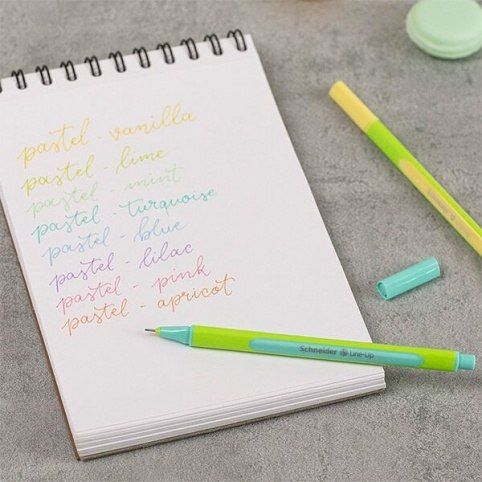 pastel - vanilla
pastel - lime
pastel - mint
pastel - turquoise
pastel - blue
pastel - lilac
pastel - pink
pastel - apricot
Schneider Line-Up